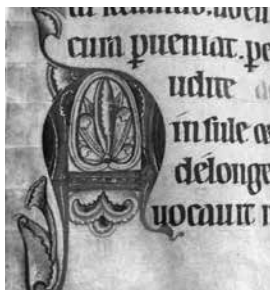 cura pueniat. pe
udite
insule
de longe
uocauit